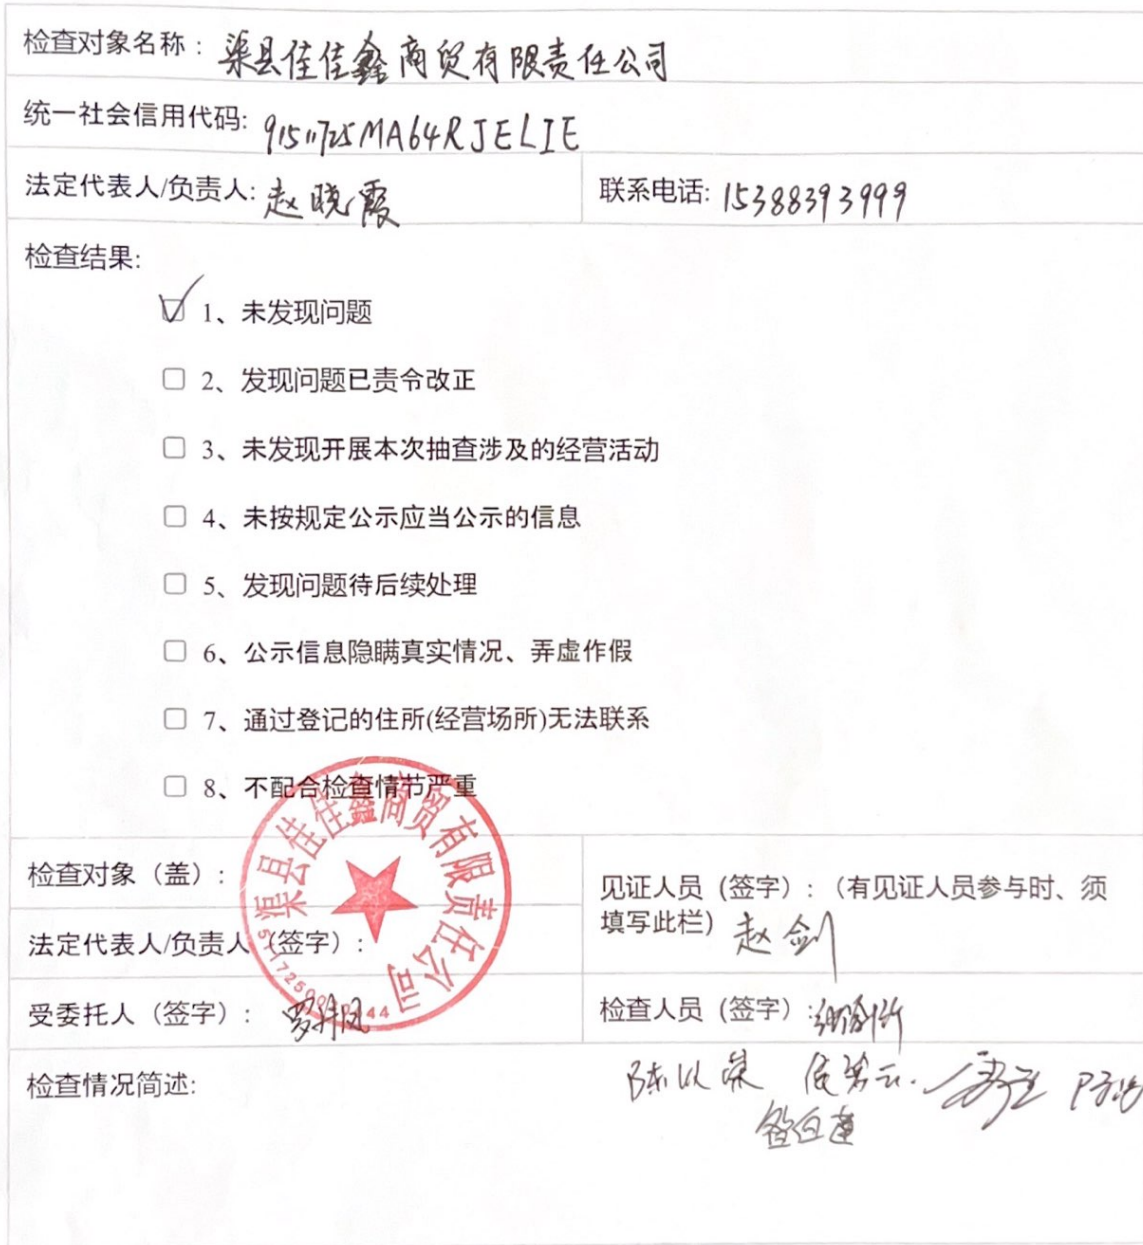 检查对象名称：渠县佳佳鑫商贸有限责任公司
统一社会信用代码: 91511725MA64RJEL1E
法定代表人/负责人: 赵晓霞 联系电话: 15388393999
检查结果:
☑ 1、未发现问题
□ 2、发现问题已责令改正
□ 3、未发现开展本次抽查涉及的经营活动
□ 4、未按规定公示应当公示的信息
□ 5、发现问题待后续处理
□ 6、公示信息隐瞒真实情况、弄虚作假
□ 7、通过登记的住所(经营场所)无法联系
□ 8、不配合检查情节严重
渠县佳佳鑫商贸有限责任公司
检查对象（盖）：
法定代表人/负责人（签字）：
见证人员（签字）：（有见证人员参与时、须
填写此栏）赵剑
受委托人（签字）：
检查人员（签字）：
检查情况简述:
陈以荣